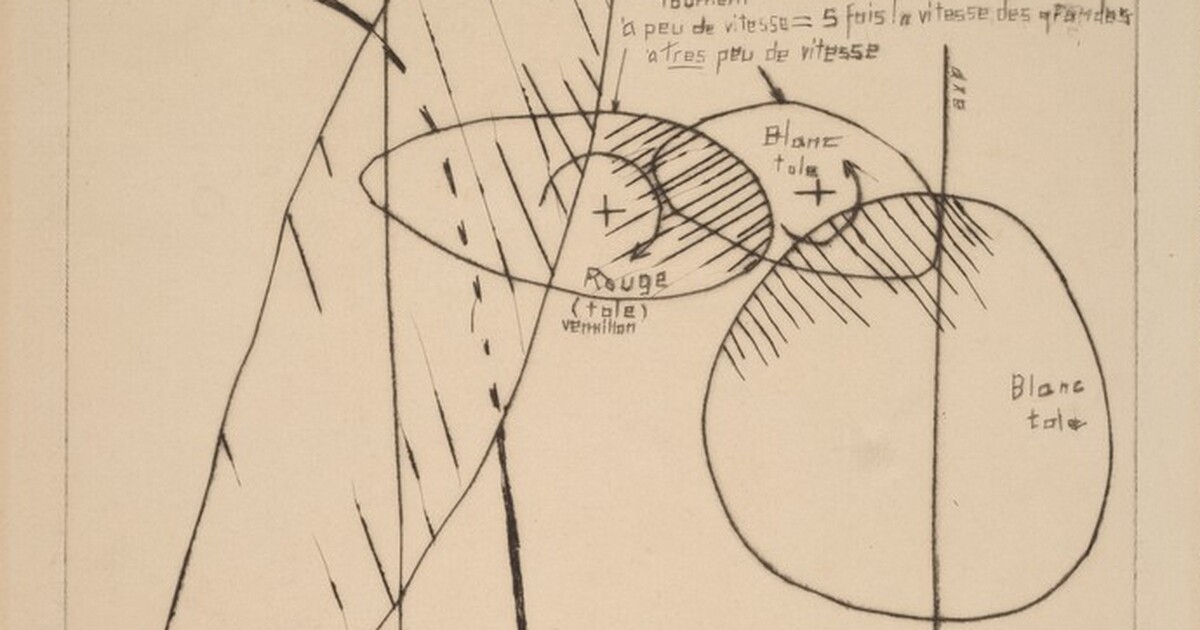 tournent
à peu de vitesse = 5 fois la vitesse des grandes
à tres peu de vitesse
axe
Blanc
tole
Rouge
(tole)
vermillon
Blanc
tole